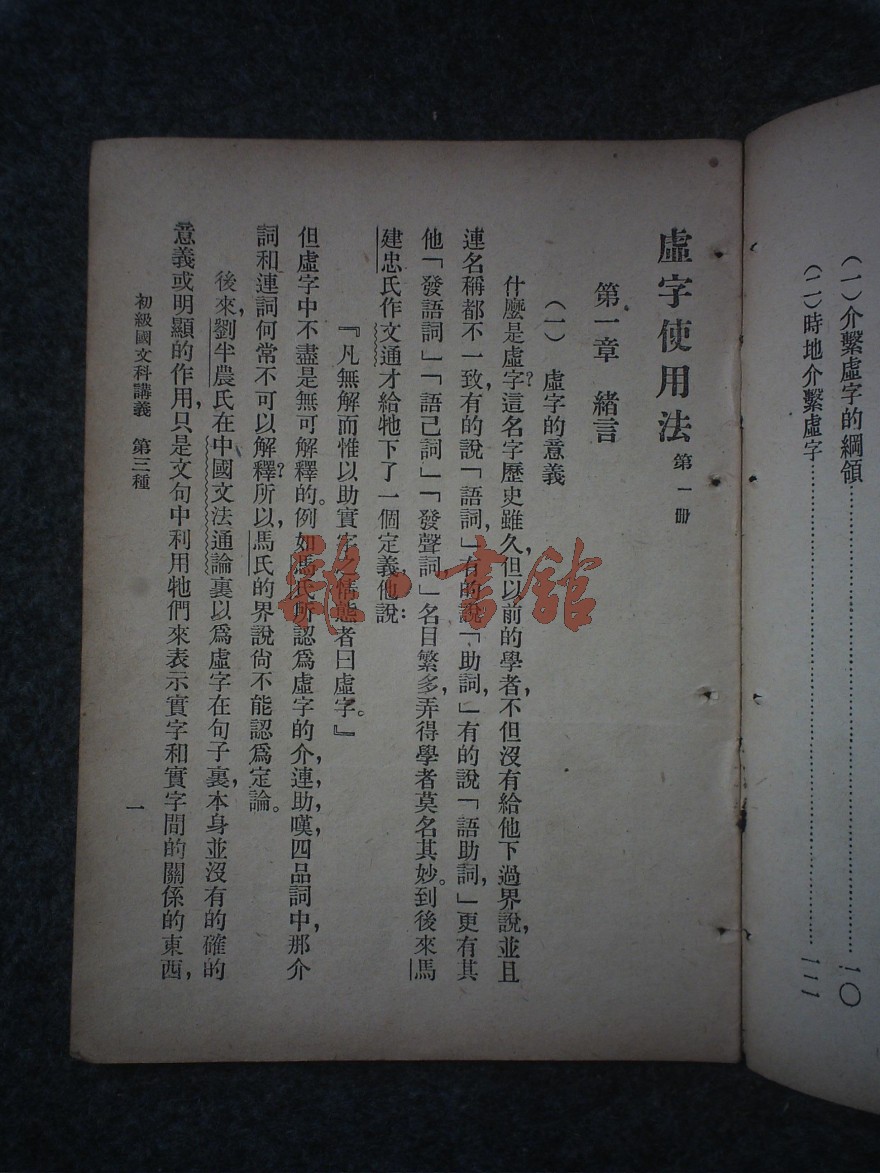 (一)介繫虛字的綱領……一〇
(二)時地介繫虛字……一二
虛字使用法 第一冊
第一章 緒言
(一) 虛字的意義
什麼是虛字?這名字歷史雖久,但以前的學者,不但沒有給他下過界說,並且
連名稱都不一致,有的說「語詞,」有的說「助詞,」有的說「語助詞,」更有其
他「發語詞」「語己詞」「發聲詞」名目繁多,弄得學者莫名其妙。到後來馬
建忠氏作文通才給牠下了一個定義,他說:
『凡無解而惟以助實字情態者曰虛字。』
但虛字中不盡是無可解釋的。例如馮氏所認爲虛字的介,連,助,嘆,四品詞中,那介
詞和連詞何常不可以解釋?所以,馬氏的界說尙不能認爲定論。
後來,劉半農氏在中國文法通論裏以爲虛字在句子裏,本身並沒有的確的
意義或明顯的作用,只是文句中利用牠們來表示實字和實字間的關係的東西,
初級國文科講義 第三種
一
雜·書館